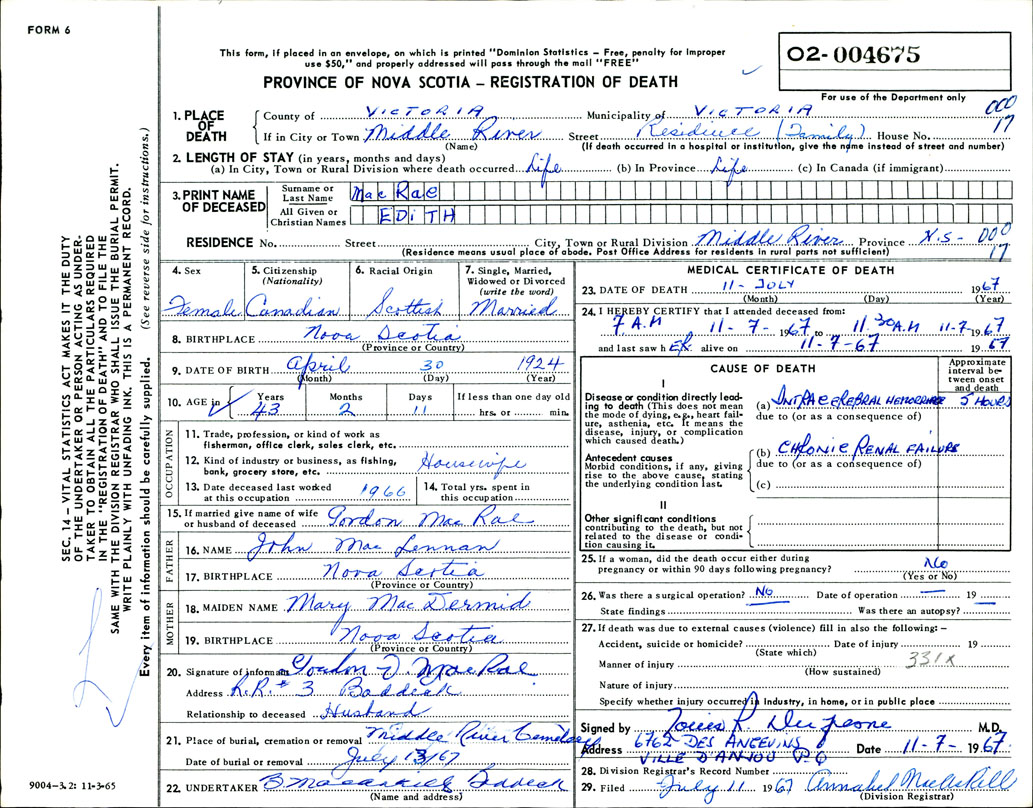 FORM 6
This form, if placed in an envelope, on which is printed "Dominion Statistics – Free, penalty for improper
use $50," and properly addressed will pass through the mail "FREE"
PROVINCE OF NOVA SCOTIA – REGISTRATION OF DEATH
02-004675
For use of the Department only
000
17
1. PLACE OF DEATH
County of VICTORIA Municipality of VICTORIA
If in City or Town Middle River Street Residence (Family) House No.
(Name) (If death occurred in a hospital or institution, give the name instead of street and number)
2. LENGTH OF STAY (in years, months and days)
(a) In City, Town or Rural Division where death occurred Life (b) In Province Life (c) In Canada (if immigrant)
3. PRINT NAME OF DECEASED
Surname or Last Name MacRae
All Given or Christian Names EDITH
RESIDENCE No. Street City, Town or Rural Division Middle River Province N.S- 000
17
(Residence means usual place of abode. Post Office Address for residents in rural parts not sufficient)
4. Sex Female
5. Citizenship (Nationality) Canadian
6. Racial Origin Scottish
7. Single, Married, Widowed or Divorced (write the word) Married
8. BIRTHPLACE Nova Scotia
(Province or Country)
9. DATE OF BIRTH April 30 1924
(Month) (Day) (Year)
10. AGE in Years 43 Months 2 Days 11 If less than one day old hrs. or min.
OCCUPATION
11. Trade, profession, or kind of work as fisherman, office clerk, sales clerk, etc.
12. Kind of industry or business, as fishing, bank, grocery store, etc. Housewife
13. Date deceased last worked at this occupation 1966
14. Total yrs. spent in this occupation
15. If married give name of wife or husband of deceased Gordon MacRae
FATHER
16. NAME John MacLennan
17. BIRTHPLACE Nova Scotia
(Province or Country)
MOTHER
18. MAIDEN NAME Mary MacDermid
19. BIRTHPLACE Nova Scotia
(Province or Country)
20. Signature of informant Gordon J. MacRae
Address R.R.# 3 Baddeck
Relationship to deceased Husband
21. Place of burial, cremation or removal Middle River Cemetery
Date of burial or removal July 13/67
22. UNDERTAKER Baddeck
(Name and address)
MEDICAL CERTIFICATE OF DEATH
23. DATE OF DEATH 11 - JULY 1967
(Month) (Day) (Year)
24. I HEREBY CERTIFY that I attended deceased from:
7 A.M 11-7-1967 to 11.30 A.M 11-7-1967
and last saw hER alive on 11-7-67 1967
CAUSE OF DEATH
Approximate interval between onset and death
I
Disease or condition directly leading to death (This does not mean the mode of dying, e.g., heart failure, asthenia, etc. It means the disease, injury, or complication which caused death.)
(a) INTRACEREBRAL HEMORRHAGE 5 HOURS
due to (or as a consequence of)
Antecedent causes
Morbid conditions, if any, giving rise to the above cause, stating the underlying condition last.
(b) CHRONIC RENAL FAILURE
due to (or as a consequence of)
(c)
II
Other significant conditions
contributing to the death, but not related to the disease or condition causing it.
25. If a woman, did the death occur either during
pregnancy or within 90 days following pregnancy? No
(Yes or No)
26. Was there a surgical operation? NO Date of operation — 19 —
State findings Was there an autopsy?
27. If death was due to external causes (violence) fill in also the following: –
Accident, suicide or homicide? Date of injury 19
(State which)
Manner of injury 331x
(How sustained)
Nature of injury
Specify whether injury occurred in industry, in home, or in public place
Signed by Louis R. M.D.
Address 6762 DES ANGEVINS
VILLE D'ANJOU P.Q Date 11-7-1967
28. Division Registrar's Record Number
29. Filed July 11 1967 Annabel
(Division Registrar)
SEC. 14 – VITAL STATISTICS ACT MAKES IT THE DUTY
OF THE UNDERTAKER OR PERSON ACTING AS UNDER-
TAKER TO OBTAIN ALL THE PARTICULARS REQUIRED
IN THE "REGISTRATION OF DEATH" AND TO FILE THE
SAME WITH THE DIVISION REGISTRAR WHO SHALL ISSUE THE BURIAL PERMIT.
WRITE PLAINLY WITH UNFADING INK. THIS IS A PERMANENT RECORD.
Every item of information should be carefully supplied. (See reverse side for instructions.)
9004-3.2: 11-3-65